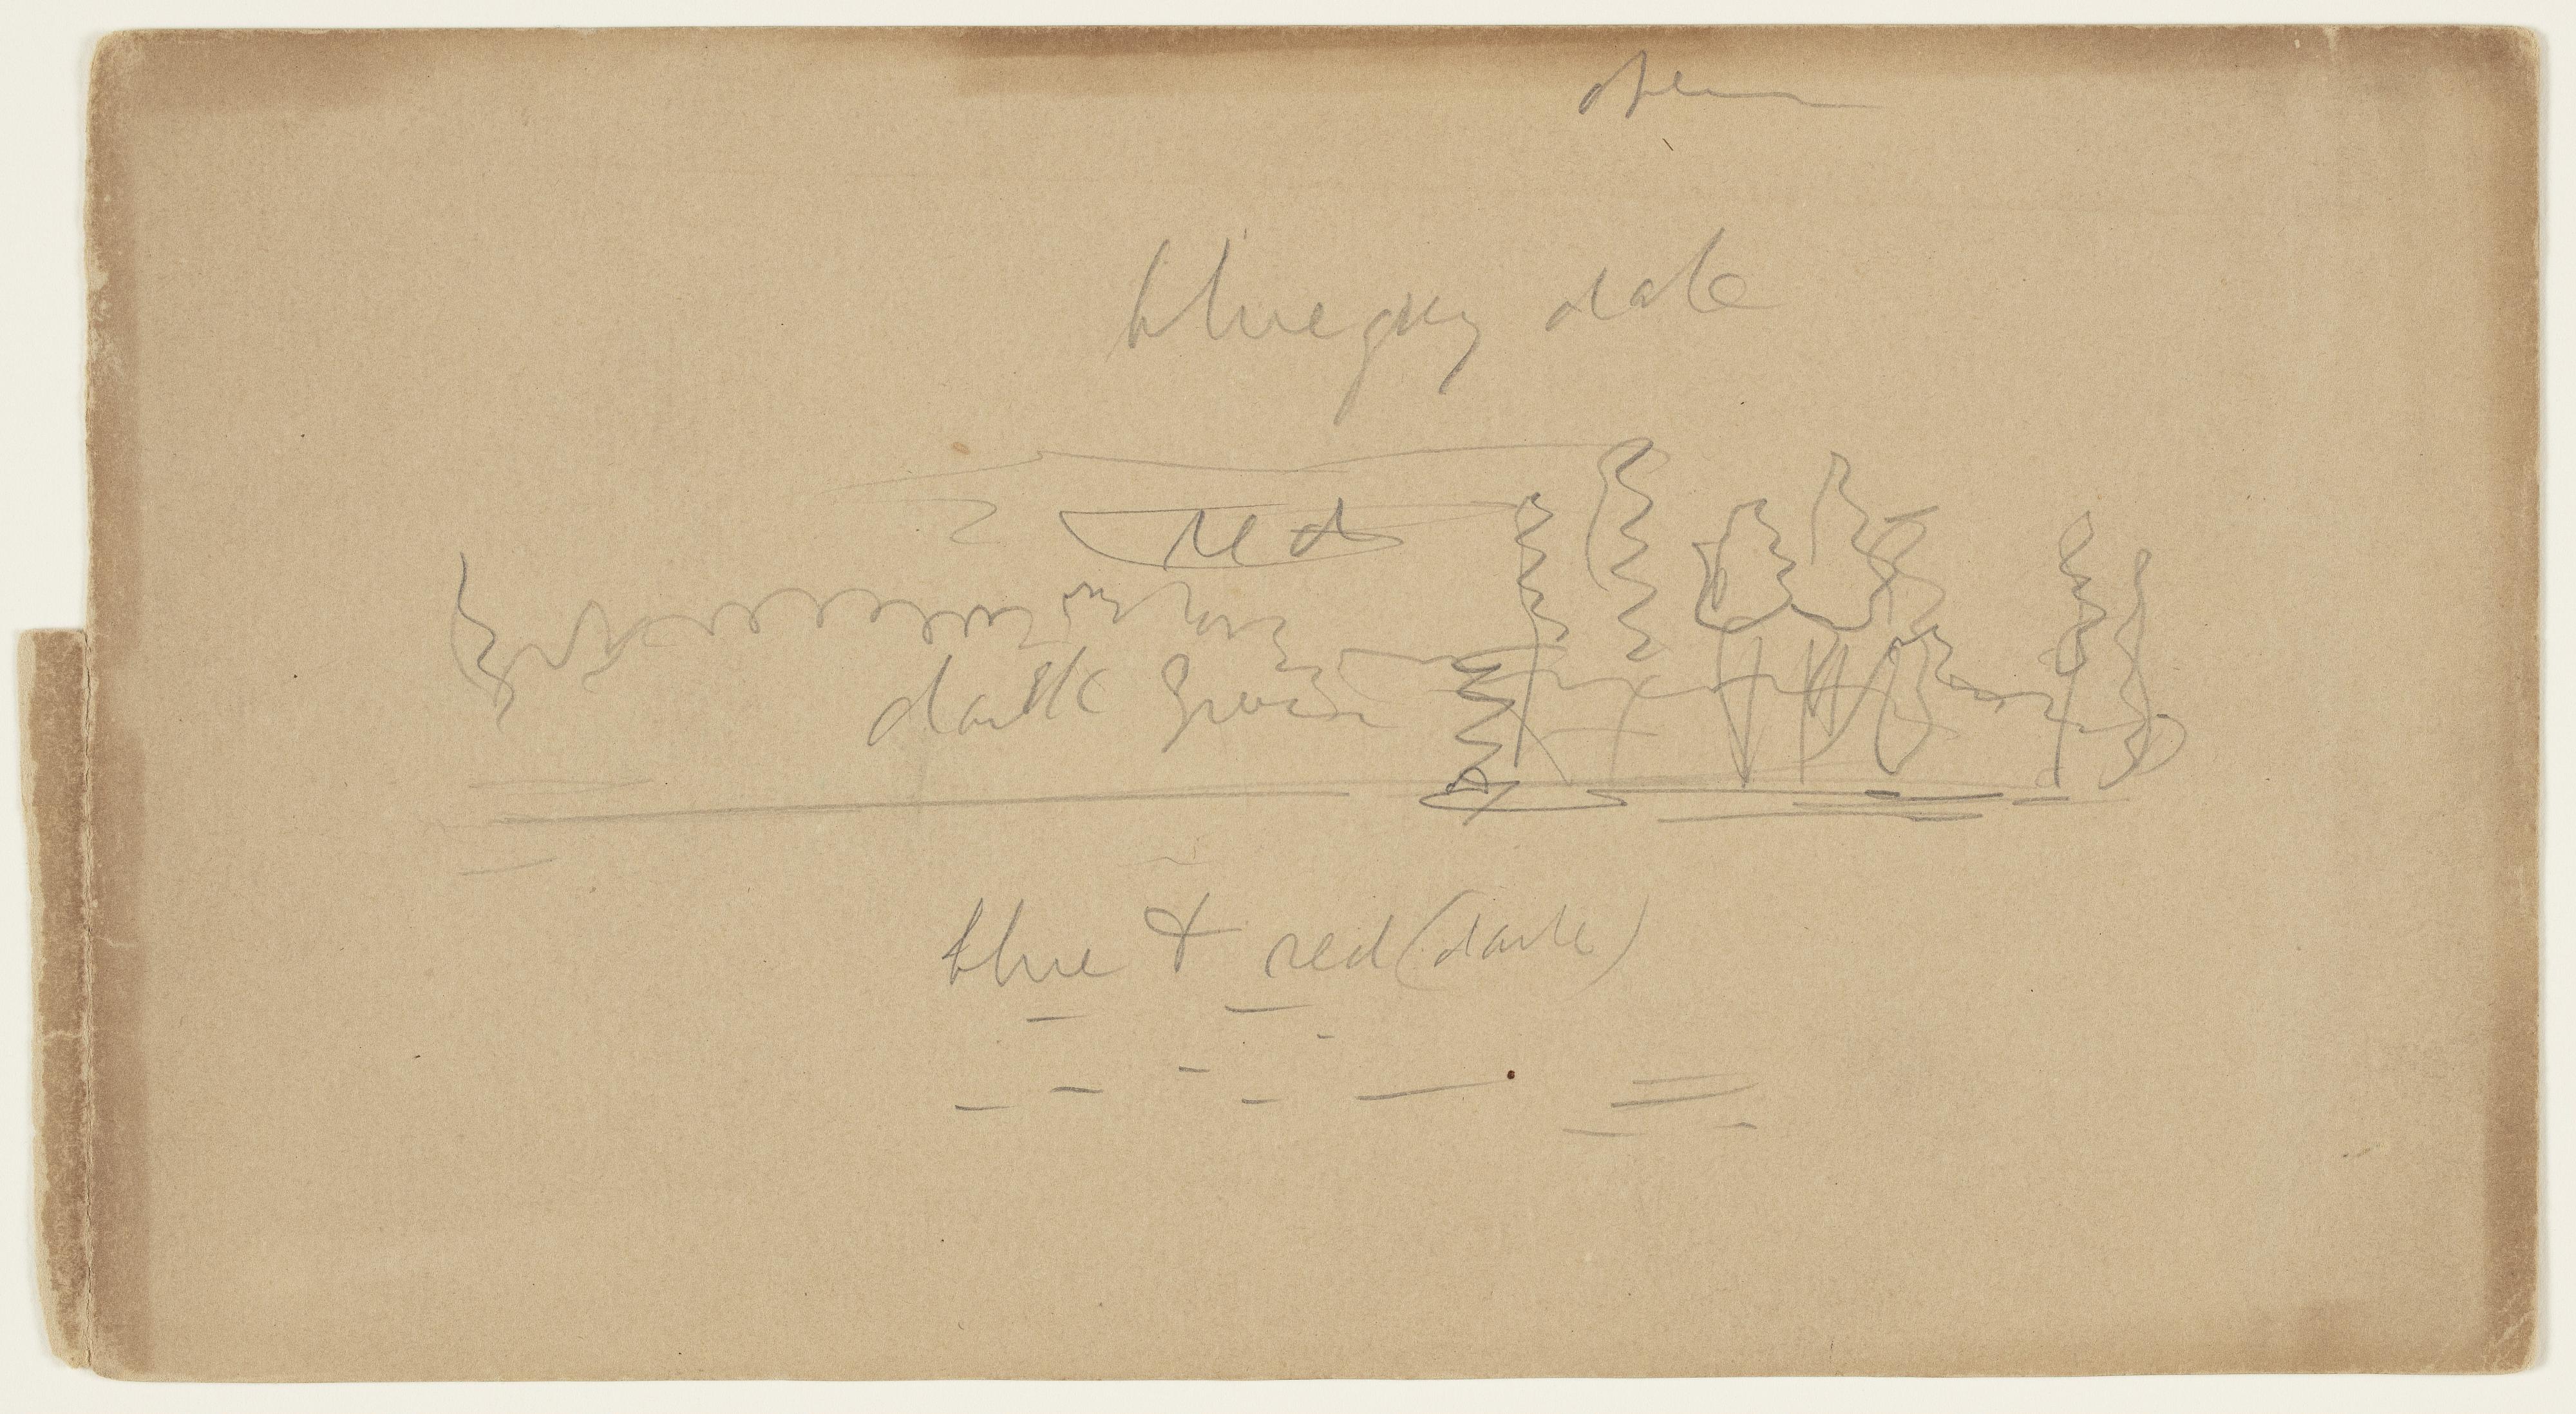 open
blue grey slate
red
dark green
blue & red (dark)